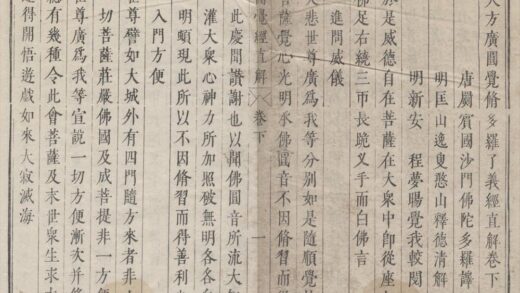 大方廣圓覺脩多羅了義經直解卷下
唐罽賓國沙門佛陀多羅譯
明匡山逸叟憨山釋德清解
明新安　程夢暘覺我較閱
於是威德自在菩薩在大衆中即從座
佛足右繞三帀長跪叉手而白佛言
進問威儀
大悲世尊廣爲我等分別如是隨順覺
菩薩覺心光明承佛圓音不因脩習而
覺經直解　卷下　一
此慶聞讚謝也以聞佛圓音所流大
灌大衆心神力所加照破無明各各
明頓現此所以不因脩習而得善利
入門方便
世尊譬如大城外有四門隨方來者非
切菩薩莊嚴佛國及成菩提非一方
世尊廣爲我等宣說一切方便漸次并脩
總有幾種令此會菩薩及末世衆生求大
速得開悟遊戲如來大寂滅海